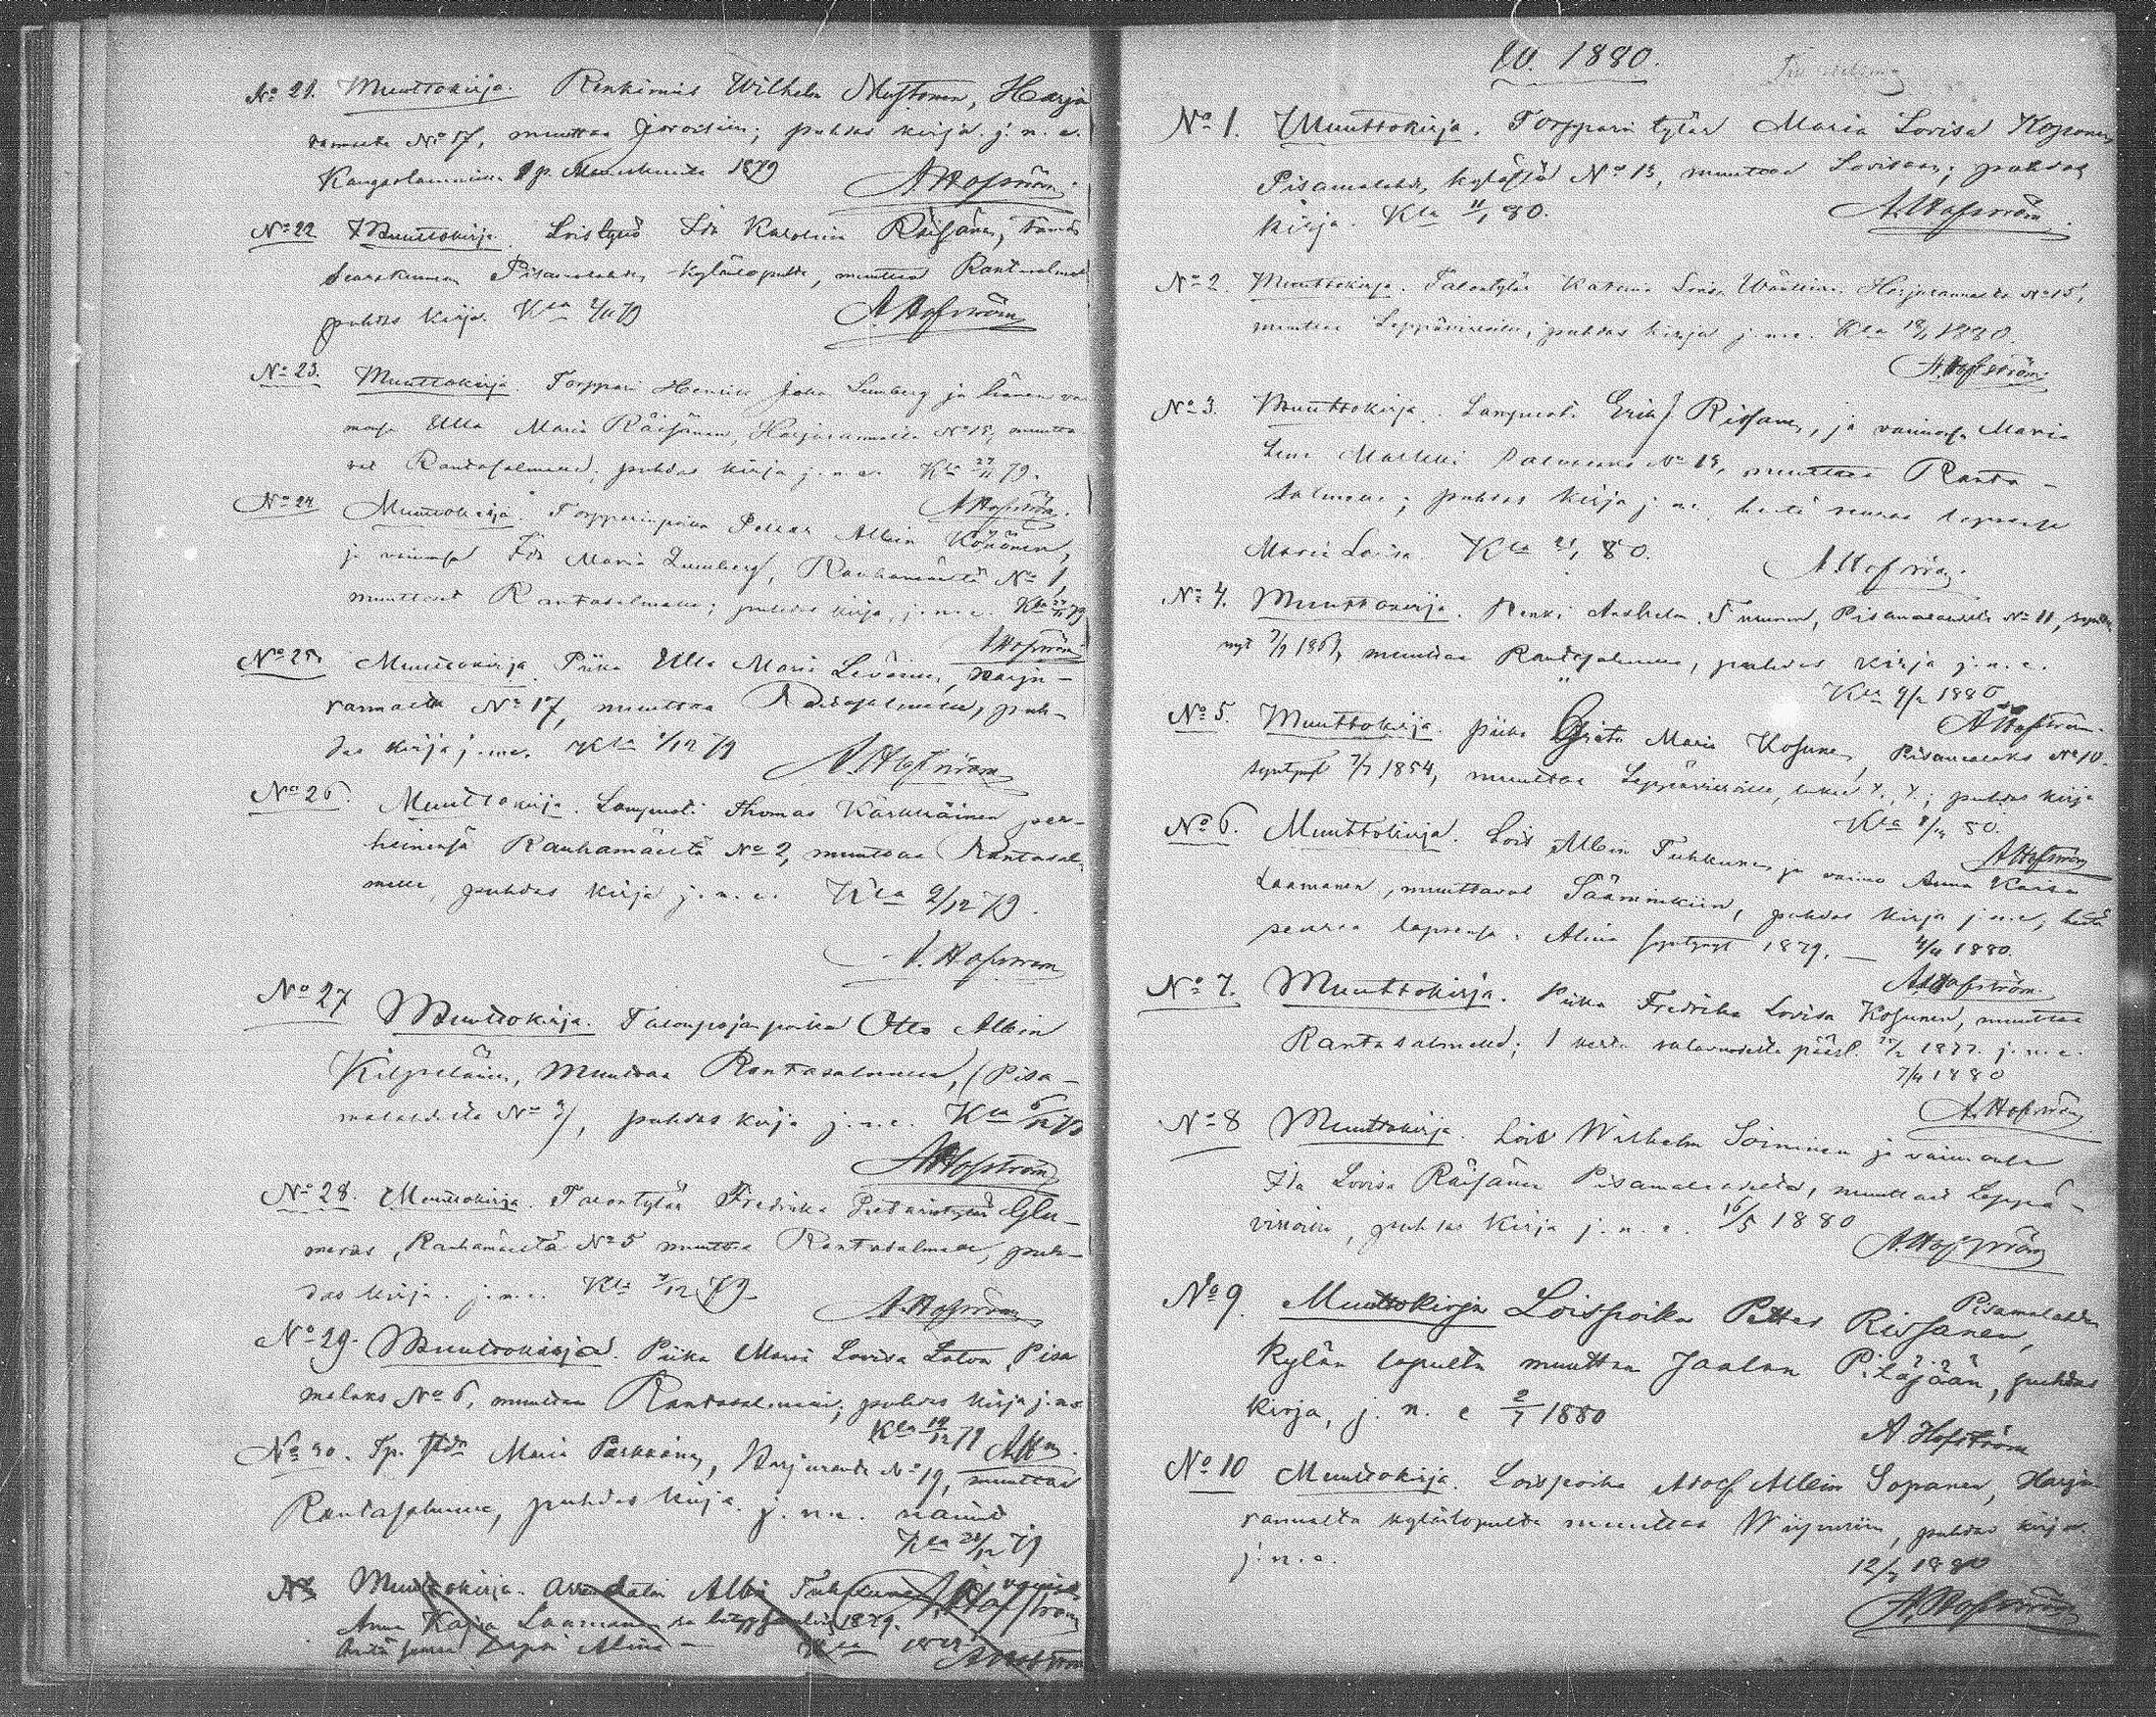 No 21. Muuttokirja. Renkimies Wilhelm Mustonen, Harju
rannalta No 17, muuttaa Joroisiin; puhdas kirja. j. n. e.
Kangaslammilla 1 p. Marraskuuta 1879
A Hofström
No 22 Muuttokirja. Loistyttö Ida Karolina Räisänen, tämän
Seurakunnan Pisamalahden kylänlopulta, muuttaa Rantasalmelle
puhdas kirja. Kla /11 79
A. Hofström
No 23. Muuttokirja. Torppari Henrik Johan Lumberg ja hänen vai
monsa Ulla Maria Räisänen, Harjurannalta No 15, muutta
vat Rantasalmelle; puhdas kirja j. n. e. Kla 27/11 79.
A Hofström.
No 24 Muuttokirja. Torpparinpoika Petter Albin Könönen,
ja vaimonsa Ida Maria Lumberg, Rauhamäeltä No 1,
muuttavat Rantasalmelle; puhdas kirja, j. n. e. Kla 27/11 79
A Hofström
No 25 Muuttokirja. Piika Ulla Maria Levänen, Harju-
rannalta No 17, muuttaa Rantasalmelle, puh-
das kirja j. n. e. Kla 1/12 79
A. Hofström
No 26. Muuttokirja. Lampuoti Thomas Karkkäinen per-
heinensä Rauhamäeltä No 2, muuttaa Rantasal-
melle, puhdas kirja j. n. e. Kla 2/12 79.
A. Hofström
No 27 Muuttokirja. Talonpojanpoika Otto Albin
Kilpeläinen, muuttaa Rantasalmelle, (Pisa-
malahdelta No 9), puhdas kirja j. n. e. Kla 6/12 79
A Hofström
No 28. Muuttokirja. Talontytär Fredrika Pietarintytär Glu-
meras, Rauhamäeltä No 5 muuttaa Rantasalmelle, puh-
das kirja. j. n. e. Kla /12 79
A. Hofström
No 29. Muuttokirja. Piika Maria Lovisa Lotvo, Pisa
malaks No 6, muuttaa Rantasalmelle; puhdas kirja j. n. e
Kla 19/12 79 A. Hm.
No 30. Tp. Maria Parkkinen, Harjuranta No 19, muuttaa
Rantasalmelle, puhdas kirja. j. n. e. nainut
Kla 28/12 79
A. Hofström
No Muuttokirja. Albin Tuhkunen vaimo
Anna Kaisa Laamanen 1879.
heitä seuraa lapsi Alina
A Hofström
W. 1880.
No 1. Muuttokirja. Torpparin tytär Maria Lovisa Koponen,
Pisamalahden kylästä No 13, muuttaa Lovisaan; puhdas
kirja. Kla 11/1 80.
A. Hofström.
No 2. Muuttokirja. Talontytär Katrina Lovisa Harjurannalta No 15,
muuttaa Leppävirroille, puhdas kirja j. n. e. Kla 18/1 1880.
A. Hofström.
No 3. Muuttokirja. Lampuoti Erik J Rissanen, ja vaimonsa Maria
Lena Markku No 19, muuttaa Ranta-
salmelle; puhdas kirja j. n. e. heitä seuraa lapsensa
Maria Lovisa. Kla 21/1 80.
A. Hofström.
No 4. Muuttokirja. Renki Anshelm Immonen, Pisamalahdelta No 11, synty
nyt 7/9 1861, muuttaa Rantasalmelle, puhdas kirja j. n. e.
Kla 9/2 1880
A Hofström.
No 5. Muuttokirja. piika Greta Maria Kosunen, Pisamalaks No 10.
syntynyt 7/7 1854, muuttaa Leppävirroille, puhdas kirja
Kla 80.
A Hofström
No 6. Muuttokirja. Lois Albin Tuhkunen ja vaimo Anna Kaisa
Laamanen, muuttavat Sääminkiin, puhdas kirja j. n. e, heitä
seuraa lapsensa. Alina syntynyt 1879. — 4/4 1880.
A. Hofström.
No 7. Muuttokirja. Piika Fredrika Lovisa Kosunen, muuttaa
Rantasalmelle; 1 kerta salavuoteudesta pääst. 1877. j. n. e.
7/4 1880
A. Hofström
No 8 Muuttokirja. Lois Wilhelm Soininen ja vaimonsa
Ida Lovisa Räisänen Pisamalahdelta, muuttavat Leppä-
virroille, puhdas kirja j. n. e. 16/5 1880
A. Hofström
No 9. Muuttokirja Loispoika Petter Rissanen, Pisamalahden
kylän lopulta muuttaa Jaalan Pitäjään, puhdas
kirja, j. n. e 2/7 1880
A. Hofström
No 10 Muuttokirja. Loispoika Adolf Albin Sopanen, Harju-
rannalta kylänlopulta muuttaa Wiipuriin, puhdas kirja.
j. n. e.
12/7 1880
A. Hofström